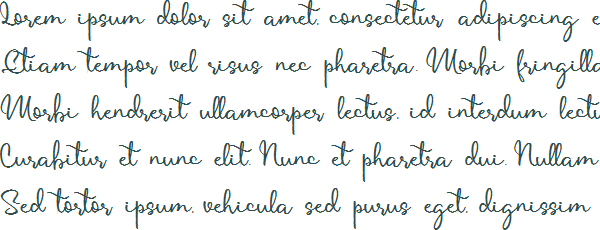 Lorem ipsum dolor sit amet, consectetur adipiscing e
Etiam tempor vel risus nec pharetra. Morbi fringilla
Morbi hendrerit ullamcorper lectus, id interdum lectu
Curabitur et nunc elit. Nunc et pharetra dui. Nullam
Sed tortor ipsum, vehicula sed purus eget, dignissim